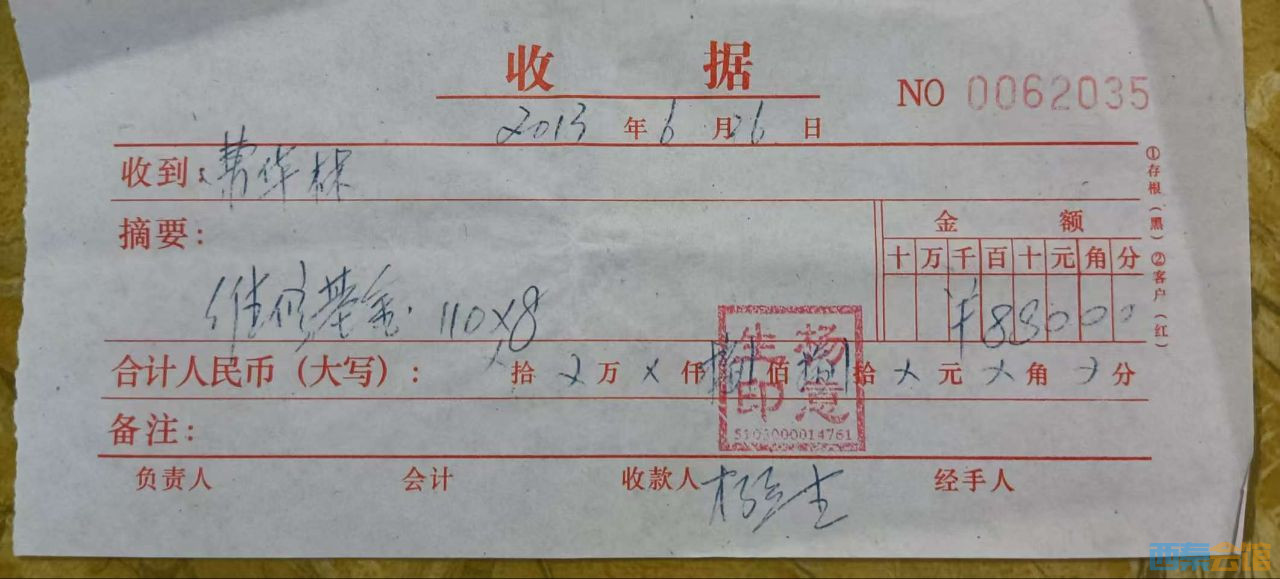 收据
NO 0062035
2013年6月26日
收到:
摘要:
金额
十万千百十元角分
维修基金. 110×8
¥88000
合计人民币（大写）: ×拾×万×仟捌佰捌拾×元×角×分
杨意
先印
5103000014761
备注:
负责人 会计 收款人 经手人
①存根（黑）②客户（红）
西秦会馆